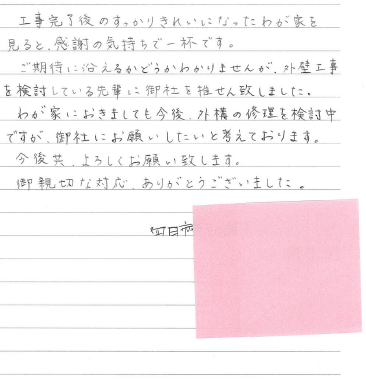 工事完了後のすっかりきれいになったわが家を
見ると、感謝の気持ちで一杯です。
ご期待に沿えるかどうかわかりませんが、外壁工事
を検討している先輩に御社を推せん致しました。
わが家におきましても今後、外構の修理を検討中
ですが、御社にお願いしたいと考えております。
今後共、よろしくお願い致します。
御親切な対応、ありがとうございました。
四日市